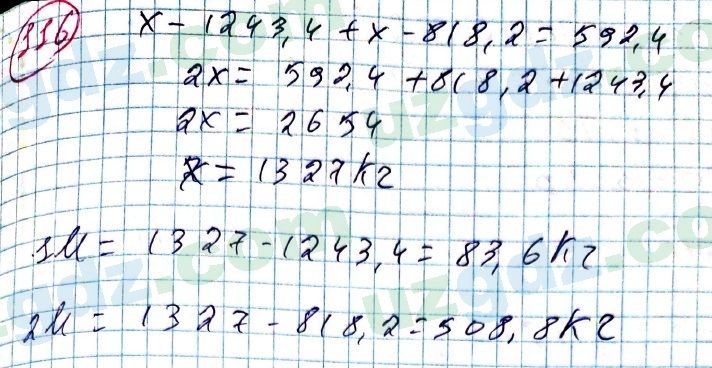 316
x - 1243,4 + x - 818,2 = 592,4
2x = 592,4 + 818,2 + 1243,4
2x = 2654
x = 1327 кг
1М = 1327 - 1243,4 = 83,6 кг
2М = 1327 - 818,2 = 508,8 кг
uzgdz.com